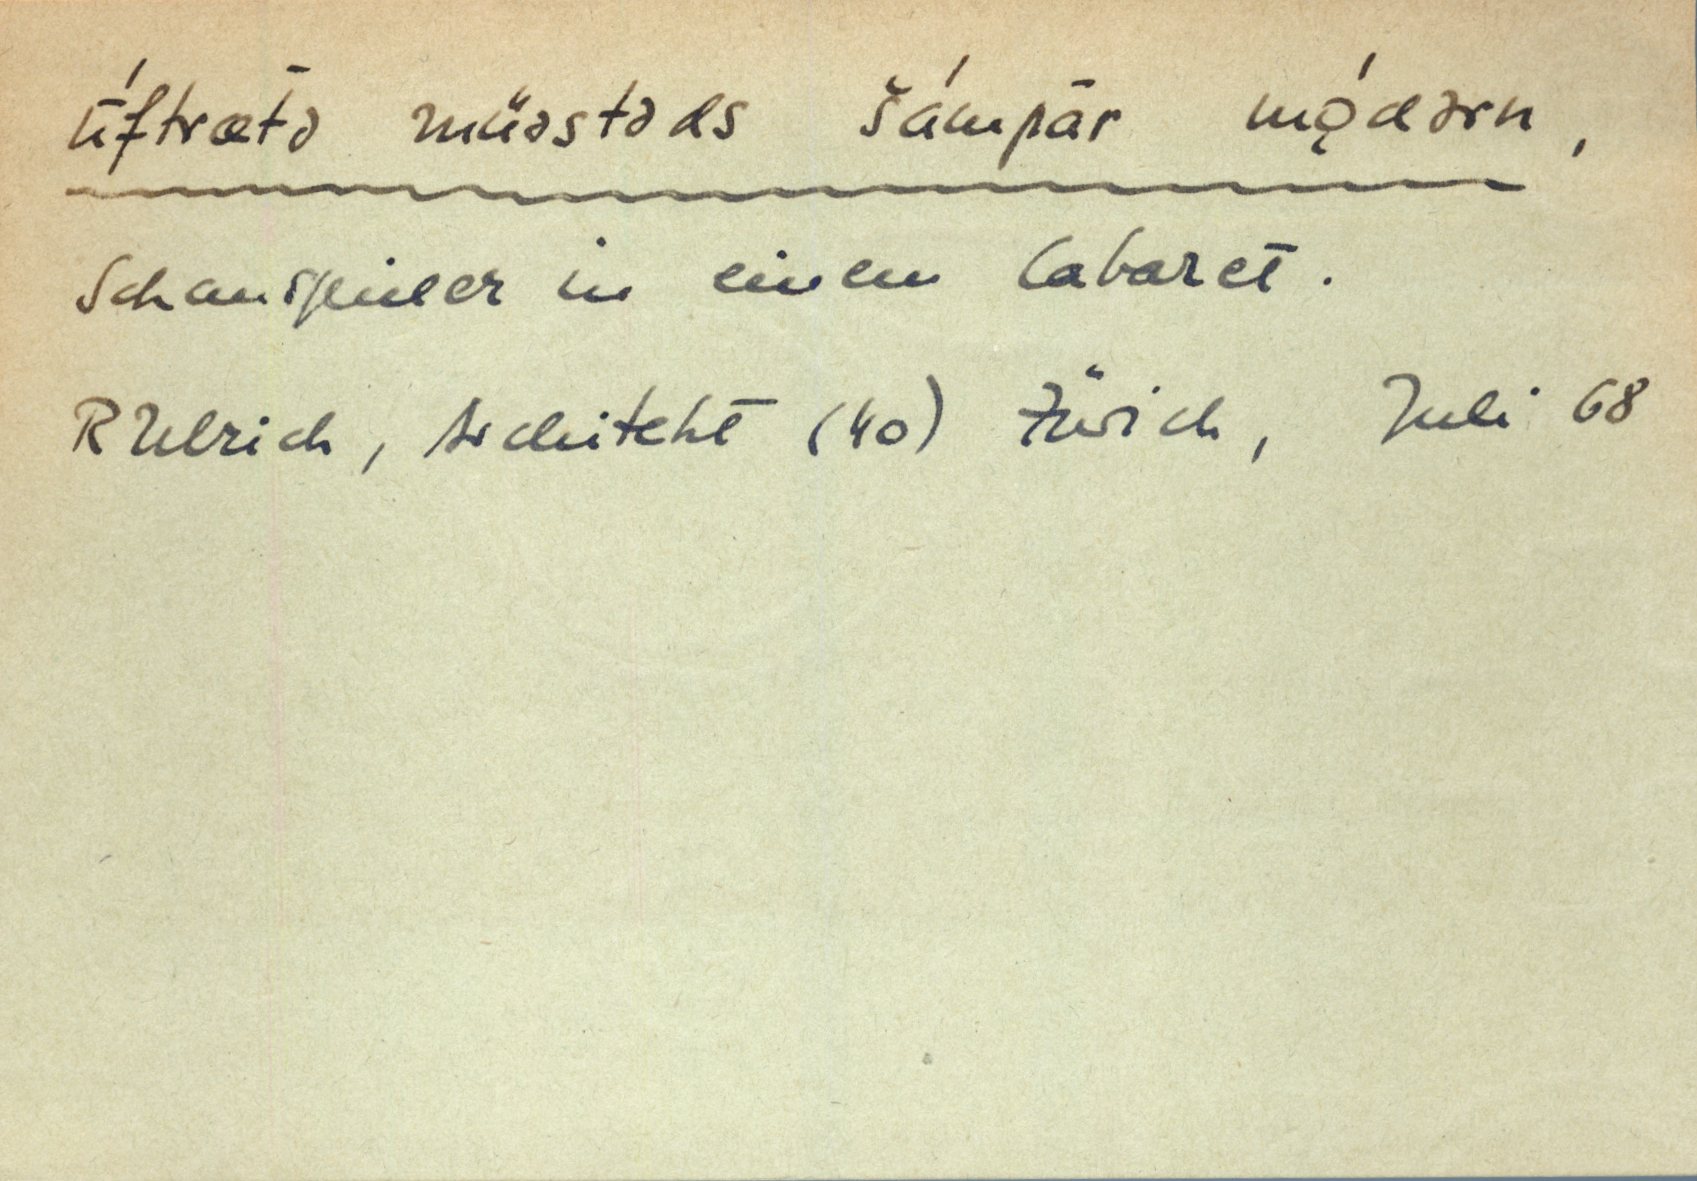 ū́ftrætə müəstəds šámpār mǫ́dərn,
Schauspieler in einem Cabaret.
R Ulrich, Architekt (40) Zürich, Juli 68